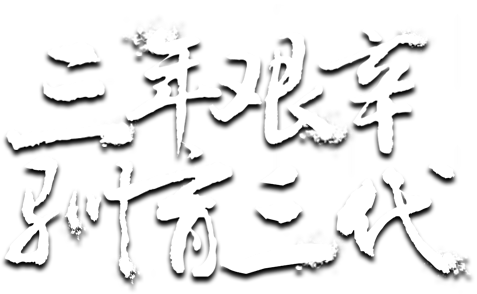 三年艰辛
驯育三代